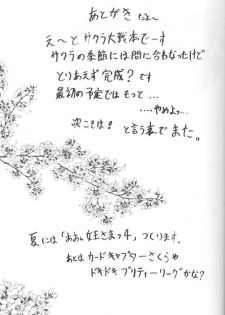 あとがき だよ〜
え〜と サクラ大戦本で〜す
サクラの季節には間に合わなかったけど
とりあえず完成？です
最初の予定ではもっと…
……やめよっ…
次こそは！ と言う事でまた。
夏には「ああん女王さまっ4」つくります。
あとは カードキャプターさくらや
ドキドキプリティーリーグかな？